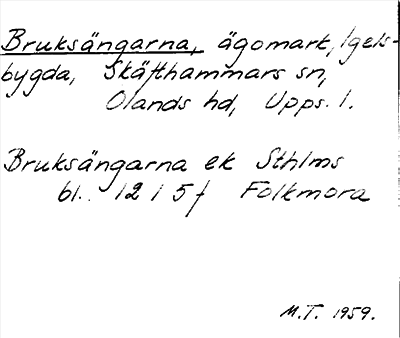 Bruksängarna, ägomark, Igels-
bygda, Skäfthammars sn,
Olands hd, Upps. l.
Bruksängarna ek Sthlms
bl. 12 I 5 f Folkmora
M.T. 1959.